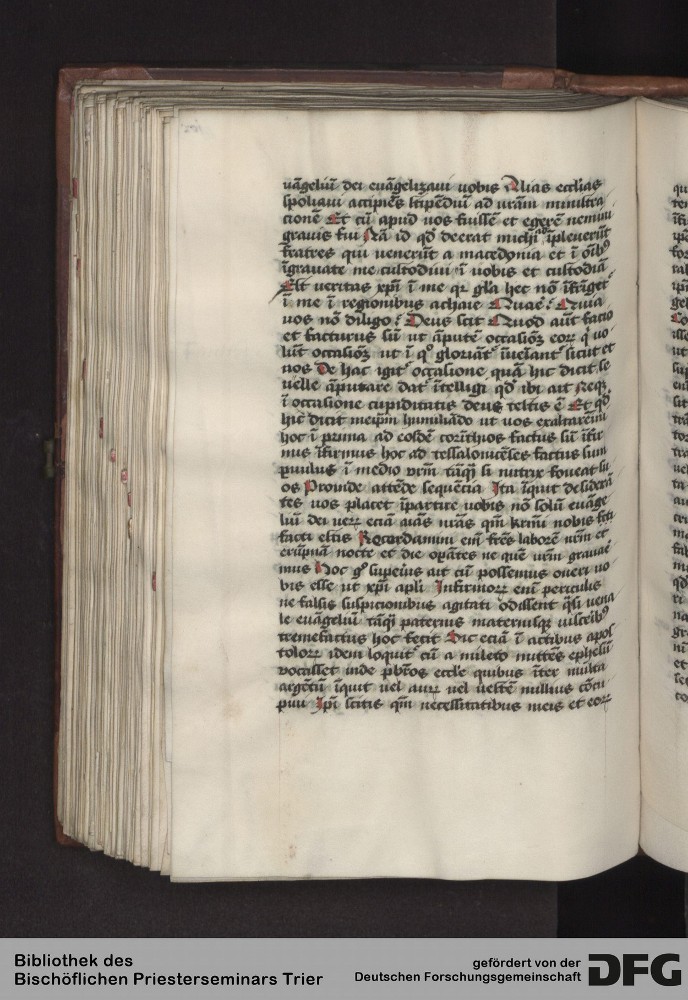 uāgeliū dei euāgelizaui uobis Alias eccl̄ias
spoliaui accipiēs stipēdiū ad ur̄am ministra
cionē Et cū apud uos eēm et egerē nemini
grauis fui Nā id qd̄ deerat michi īpleuerūt
fratres qui venerūt a macedonia et ī oībꝰ
īgrauate me custodiui ī uobis et custodiā
Est veritas xp̄i ī me qꝛ gl̄a hec nō īfrīget᷑
ī me ī regionibus achaie Quare? Quia
uos nō diligo? Deus scit Quod aūt facio
et facturus sū ut āputē occasiōꝫ eoꝝ q̇ uo
lūt occasiōꝫ ut ī qͦ gloriāt᷑ īueīant᷑ sicut et
nos De hac igit᷑ occasione quā hic dicit se
uelle āputare dat᷑ ītelligi qd̄ ibi ait Neqꝫ
ī occasione cupiditatis deus testis ē Et qd̄
hic dicit meip̄m humiliādo ut uos exaltaremī
hoc ī prima ad eosdē corīthios factus sū īfir
mus īfirmus hoc ad tessalonicēses factus sum
ꝑuulus ī medio vr̄m tāqͣ si nutrix foueat fili
os Proinde attēde sequēcia Ita īquit desiderā
tes uos placet īpartire uobis nō solū euāge
liū dei uerꝝ eciā aīas ur̄as qm̄ kr̄mi nobis
facti estis Recordamini eīm fr̄es laborē nr̄m et
erūpnā nocte et die oꝑātes ne quē ur̄m grauarē
mus Hoc gͦ superius ait cū possemus oneri uo
bis esse ut xp̄i apl̄i Infirmoꝝ enī periculis
ne falsis suspicionibus agitati odissent qͣsi uena
le euāgeliū tāqͣ paternis maternisqꝫ uisceribꝰ
tremefactus hoc fecit Sic eciā ī actibus apos
toloꝝ idem loquit᷑ cū a mileto mittēs ephesū
vocasset inde pb̄ros eccl̄e quibus īter multa
argētū īquit uel auꝝ uel uestē nullius cōcu
piui Ip̄i scitis qm̄ necessitatibus meis et eoꝝ
Bibliothek des
Bischöflichen Priesterseminars Trier
gefördert von der
Deutschen Forschungsgemeinschaft
DFG